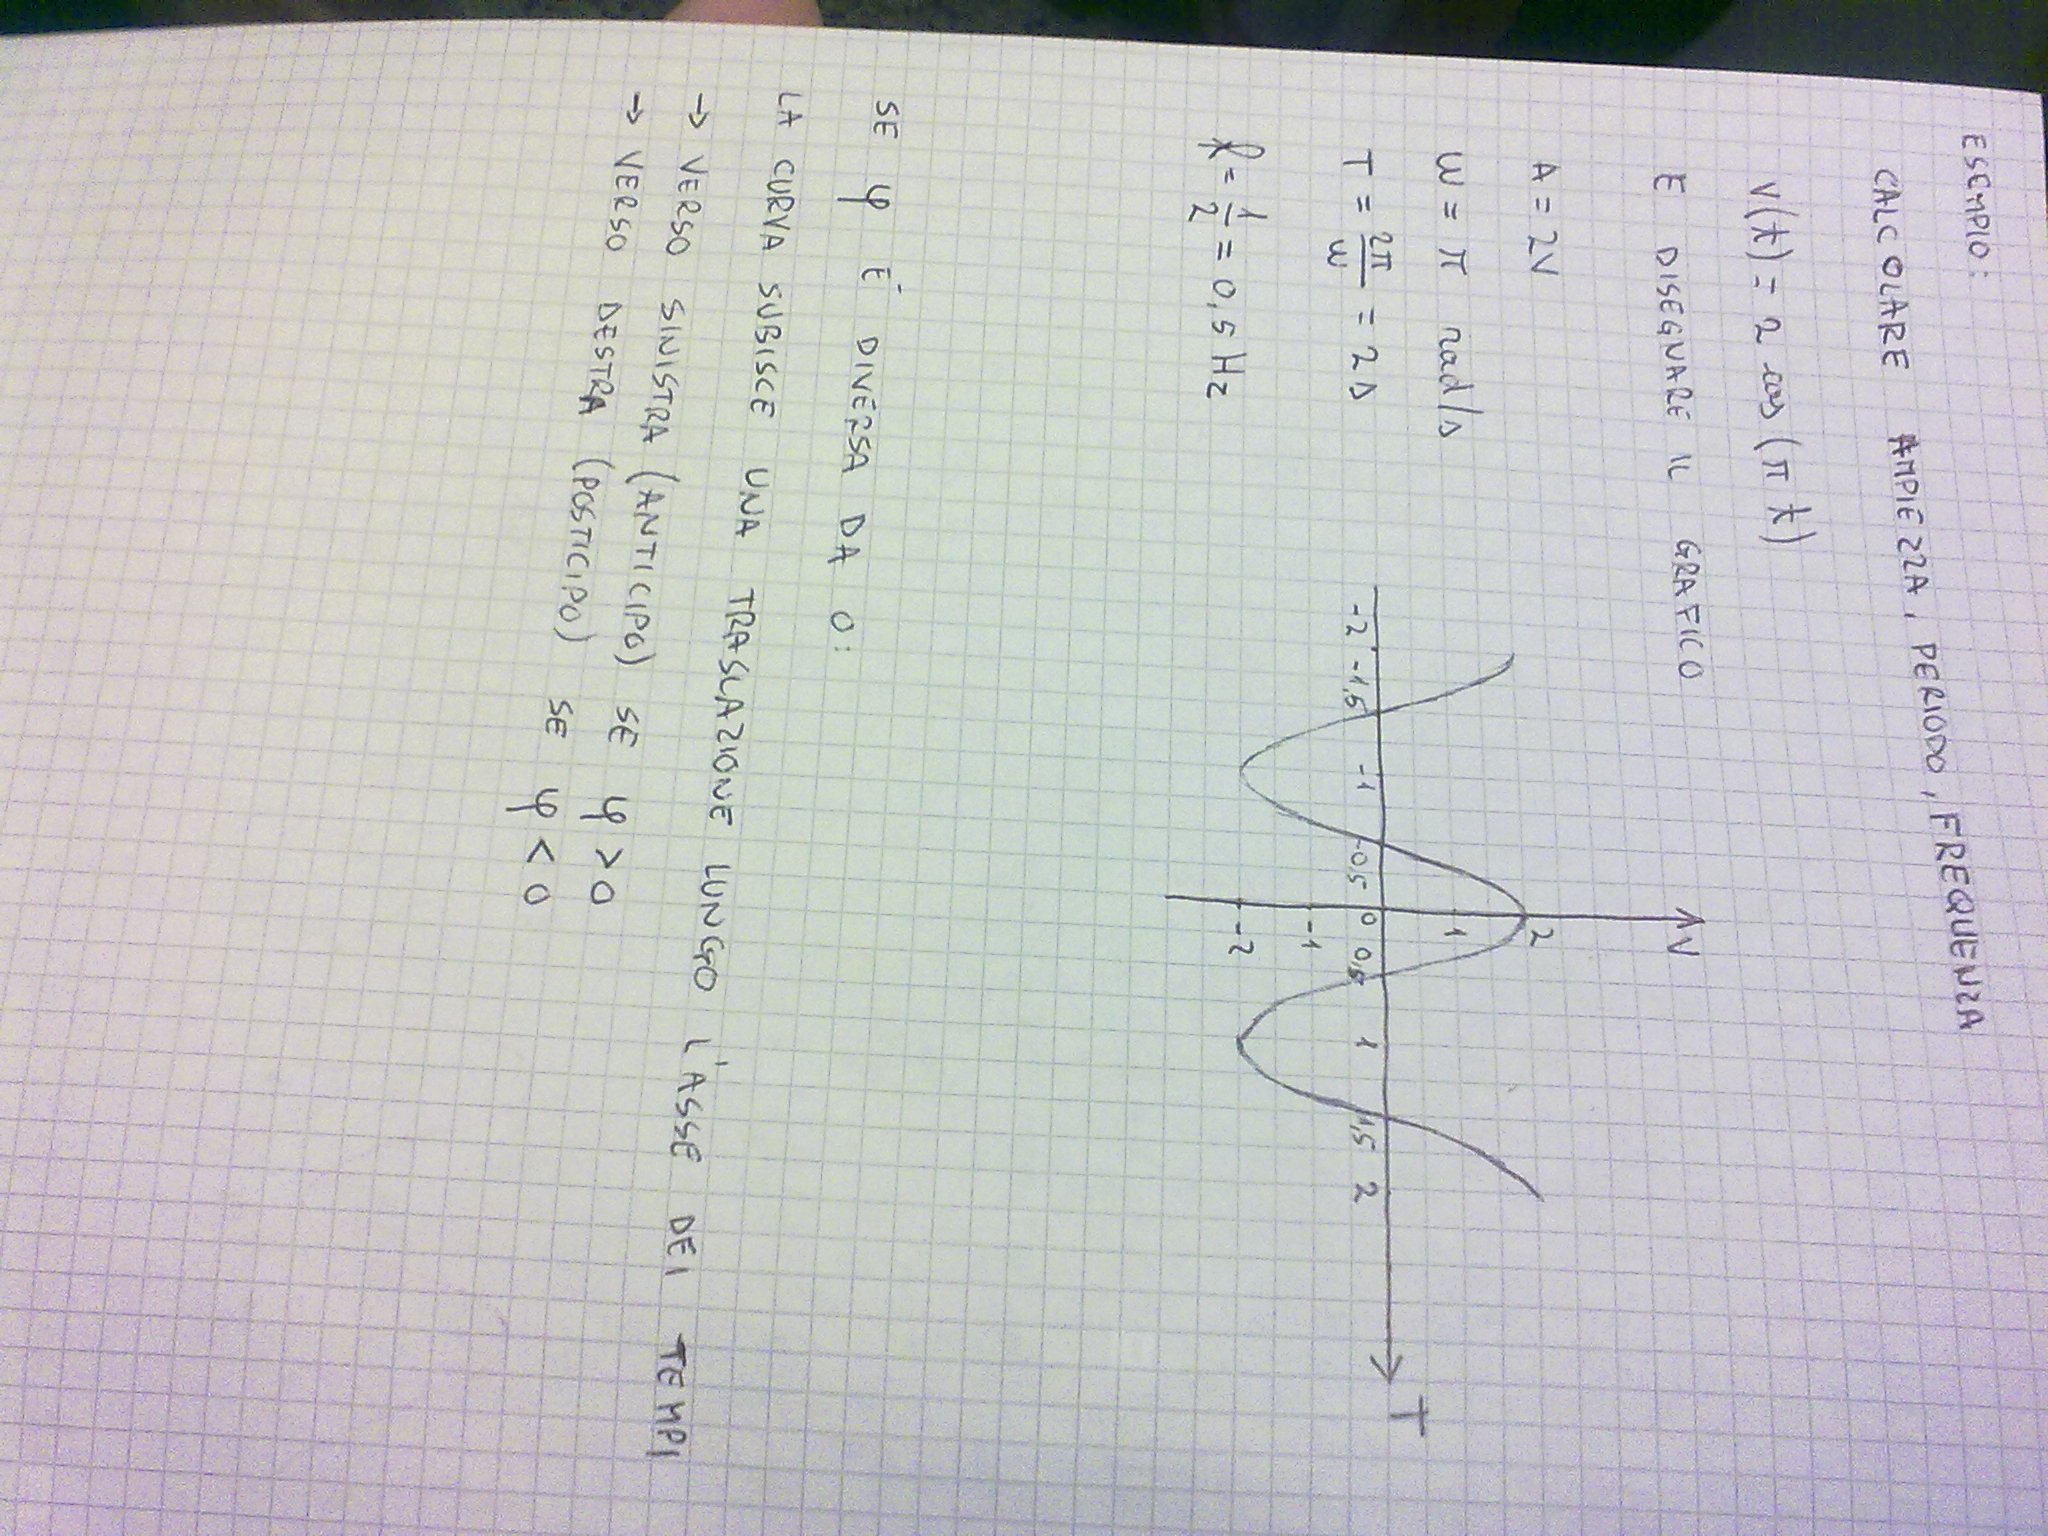 ESEMPIO:
CALCOLARE AMPIEZZA, PERIODO, FREQUENZA
V(t) = 2 cos (π t)
E DISEGNARE IL GRAFICO
A = 2V
ω = π rad/s
T = 2π/ω = 2s
f = 1/2 = 0,5 Hz
V
2
1
-2 -1,5 -1 -0,5 0 0,5 1 1,5 2 T
-1
-2
SE φ É DIVERSA DA 0:
LA CURVA SUBISCE UNA TRASLAZIONE LUNGO L'ASSE DEI TEMPI
→ VERSO SINISTRA (ANTICIPO) SE φ > 0
→ VERSO DESTRA (POSTICIPO) SE φ < 0